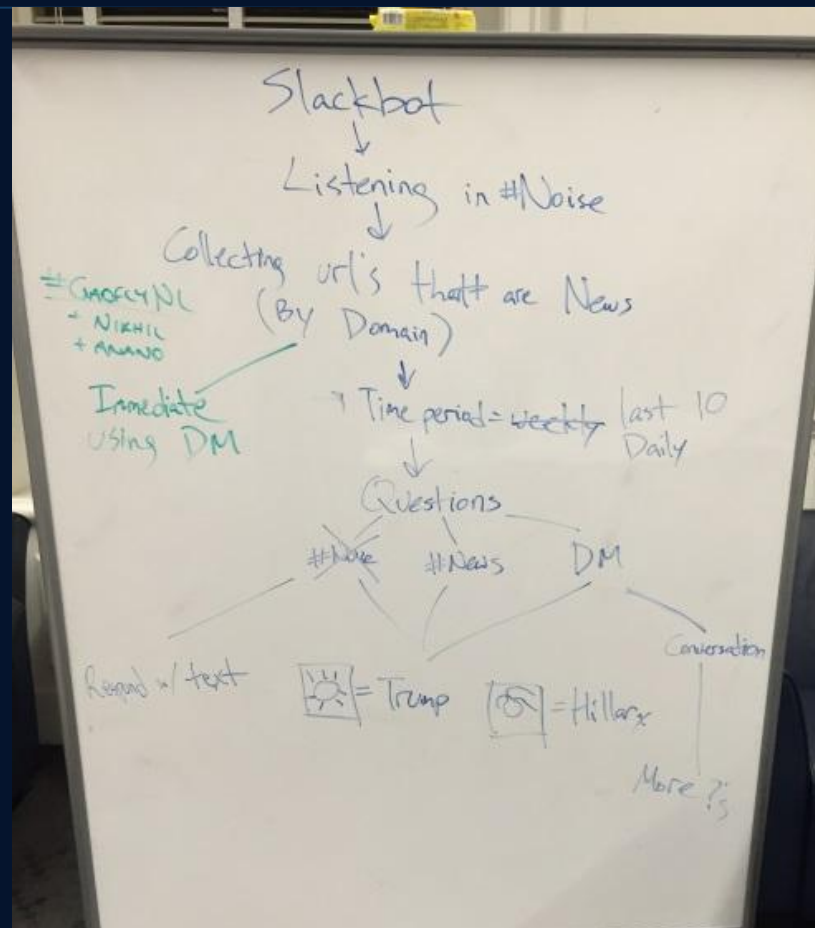 Slackbot
Listening in #Noise
Collecting url's that are News
(By Domain)
#GADFLYNL
+ NIKHIL
+ ANAND
Immediate
using DM
Time period = weekly last 10
Daily
Questions
#Noise #News DM
Conversation
Respond w/ text
= Trump = Hillary
More ?'s